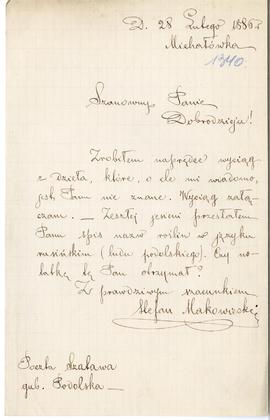 D. 28 Lutego 1886 r.
Michałówka
1340
Szanowny Panie
Dobrodzieju!
Zrobiłem naprędce wyciąg
z dzieła, które, o ile mi wiadomo,
jest Panu nie znane. Wyciąg załą-
czam. — Zeszłej jesieni przesłałem
Panu spis nazw roślin w języku
rusińskim (ludu podolskiego). Czy no-
tatkę tę Pan otrzymał?
Z prawdziwym szacunkiem
Stefan Makowiecki
Poczta Szatawa
gub. Podolska —